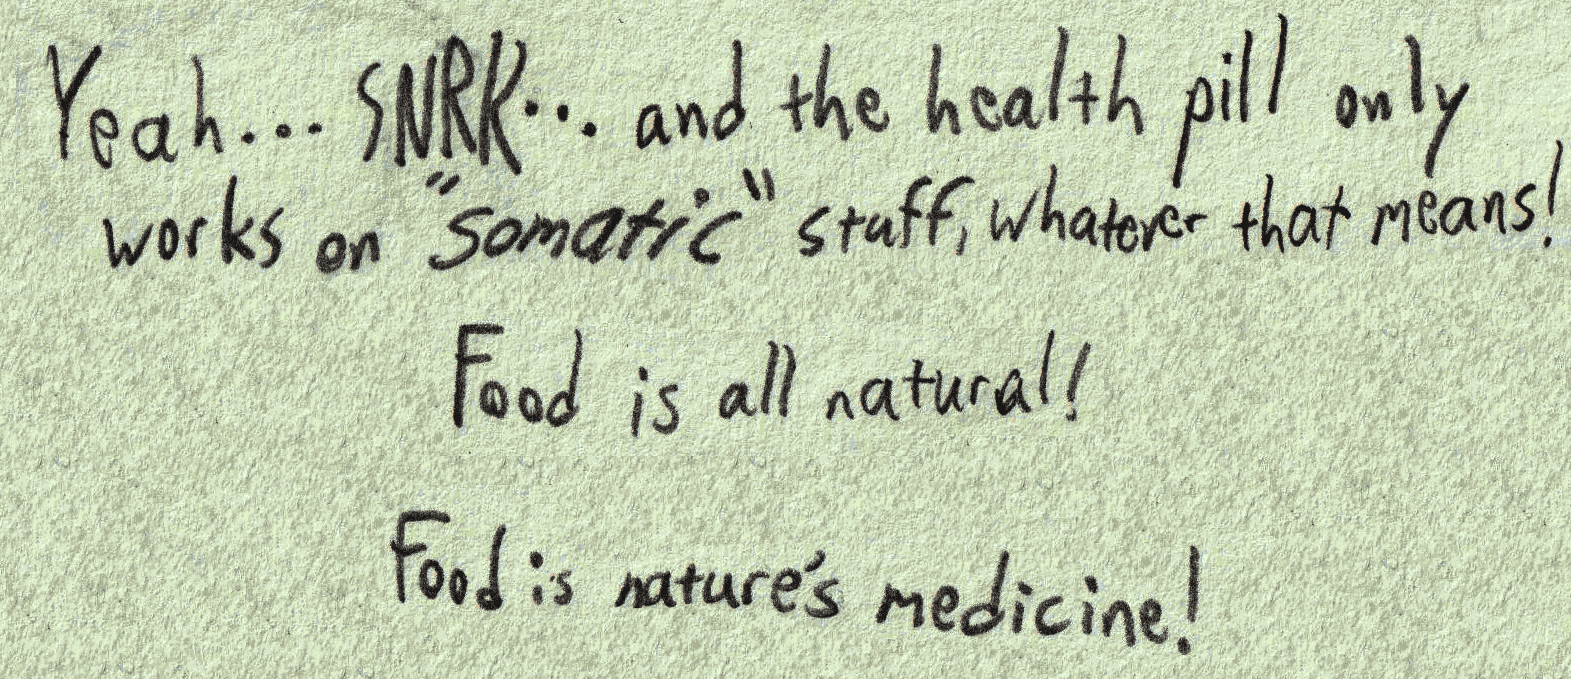 Yeah... SNRK... and the health pill only
works on "somatic" stuff, whatever that means!
Food is all natural!
Food is nature's medicine!